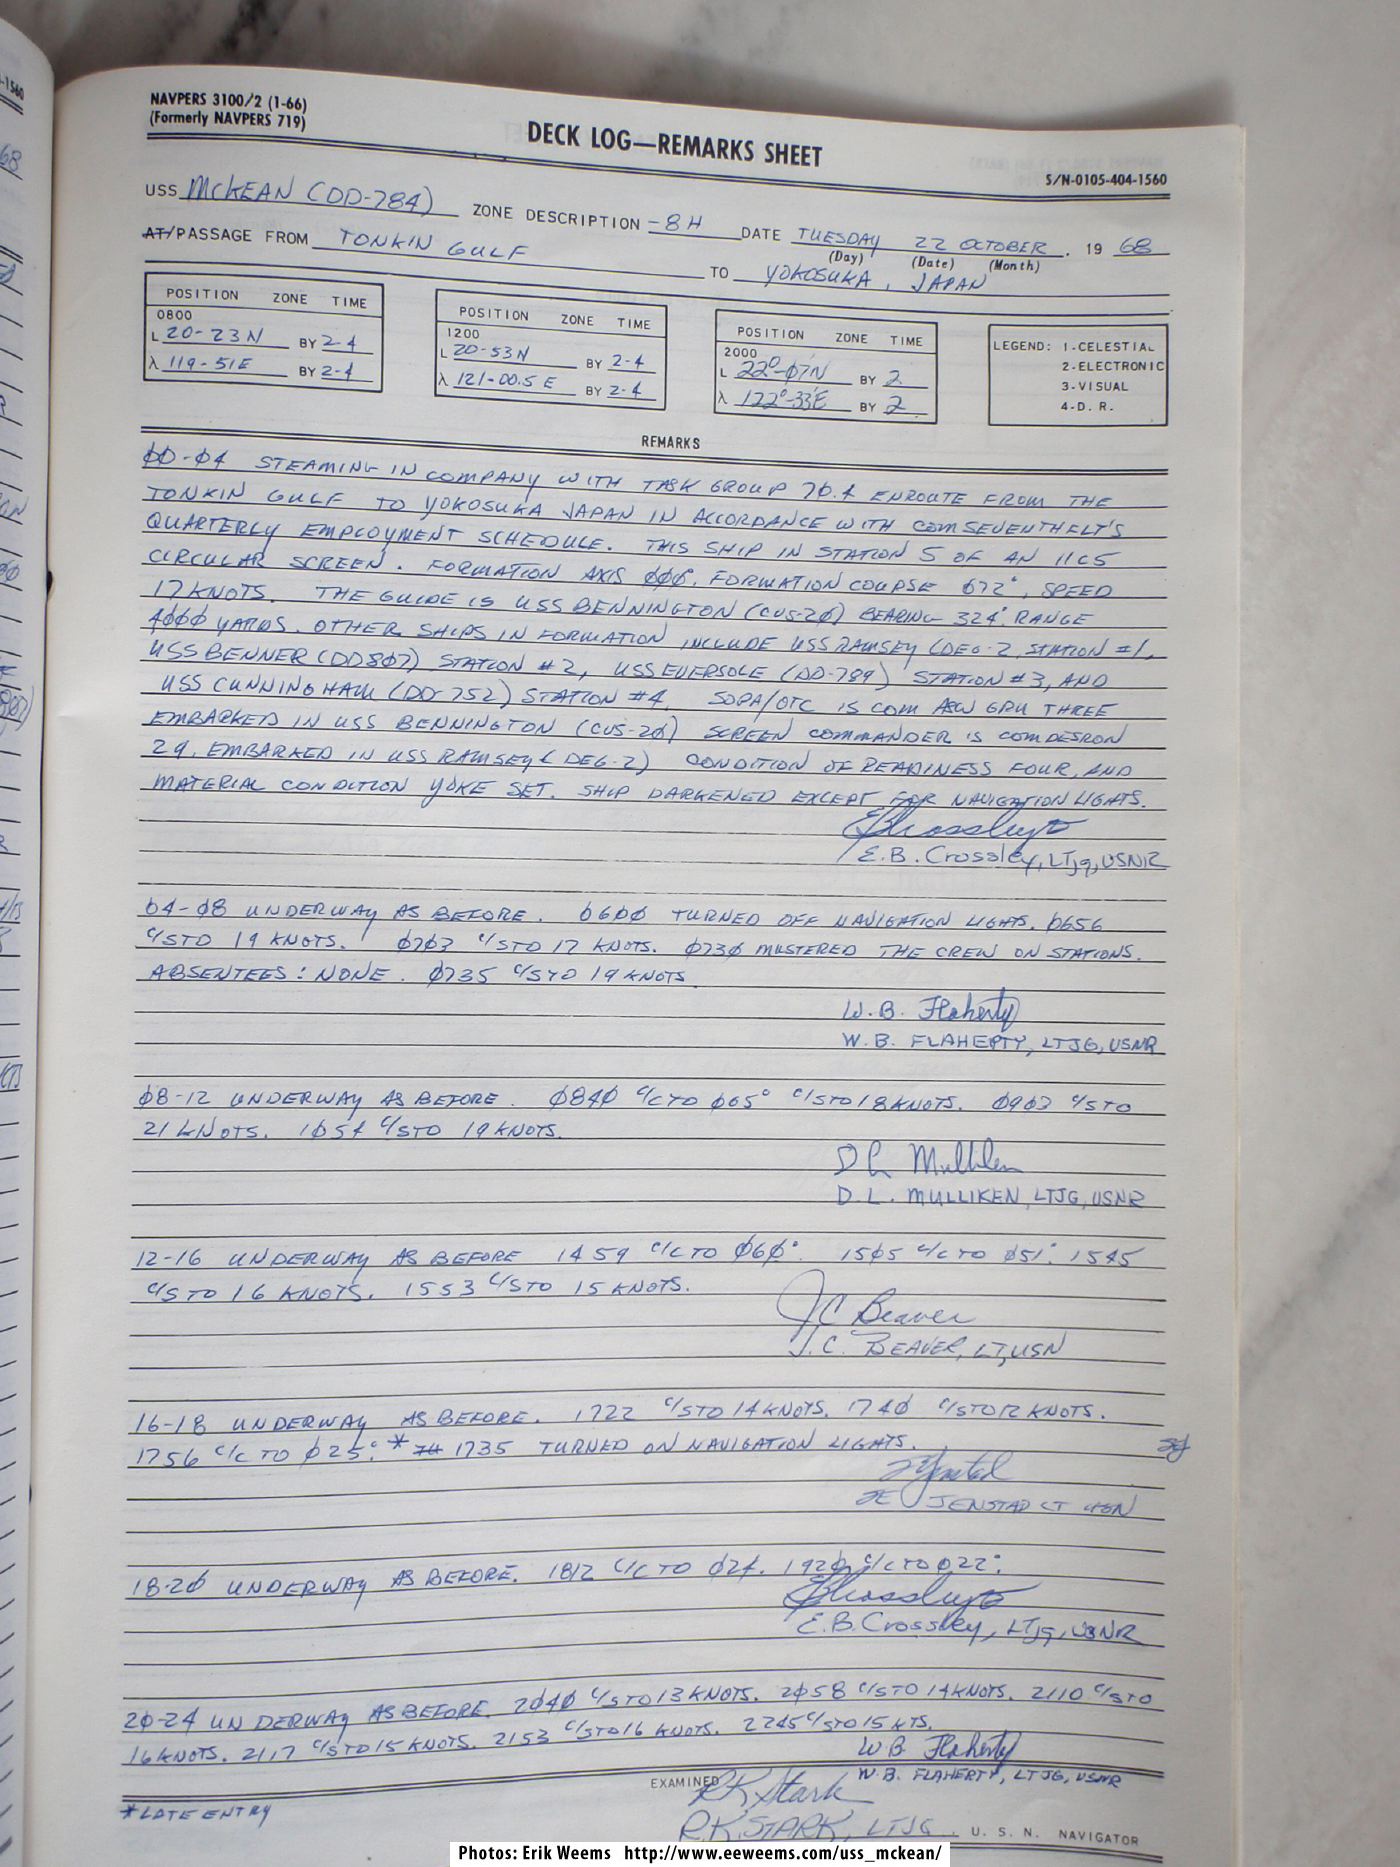 NAVPERS 3100/2 (1-66)
(Formerly NAVPERS 719)
DECK LOG—REMARKS SHEET
S/N-0105-404-1560
USS McKEAN (DD-784) ZONE DESCRIPTION -8H DATE TUESDAY 22 OCTOBER, 19 68
(Day) (Date) (Month)
AT/PASSAGE FROM TONKIN GULF TO YOKOSUKA, JAPAN
POSITION ZONE TIME
0800
L 20-23N BY 2-4
λ 119-51E BY 2-4
POSITION ZONE TIME
1200
L 20-53N BY 2-4
λ 121-00.5E BY 2-4
POSITION ZONE TIME
2000
L 22°-07N BY 2
λ 122°-33E BY 2
LEGEND: 1-CELESTIAL
2-ELECTRONIC
3-VISUAL
4-D. R.
REMARKS
00-04 STEAMING IN COMPANY WITH TASK GROUP 70.4 ENROUTE FROM THE
TONKIN GULF TO YOKOSUKA JAPAN IN ACCORDANCE WITH COMSEVENTHFLT'S
QUARTERLY EMPLOYMENT SCHEDULE. THIS SHIP IN STATION 5 OF AN 11C5
CIRCULAR SCREEN. FORMATION AXIS 000°. FORMATION COURSE 072°, SPEED
17 KNOTS. THE GUIDE IS USS BENNINGTON (CVS-20) BEARING 324° RANGE
4000 YARDS. OTHER SHIPS IN FORMATION INCLUDE USS RAMSEY (DEG-2, STATION #1,
USS BENNER (DD807) STATION #2, USS EVERSOLE (DD-789) STATION #3, AND
USS CUNNINGHAM (DD-752) STATION #4. SOPA/OTC IS COM ASW GRU THREE
EMBARKED IN USS BENNINGTON (CVS-20) SCREEN COMMANDER IS COMDESRON
29, EMBARKED IN USS RAMSEY (DEG-2) CONDITION OF READINESS FOUR, AND
MATERIAL CONDITION YOKE SET. SHIP DARKENED EXCEPT FOR NAVIGATION LIGHTS.
E.B. Crossley, LTjg, USNR
04-08 UNDERWAY AS BEFORE. 0600 TURNED OFF NAVIGATION LIGHTS. 0656
C/S TO 19 KNOTS. 0703 C/S TO 17 KNOTS. 0730 MUSTERED THE CREW ON STATIONS.
ABSENTEES: NONE. 0735 C/S TO 19 KNOTS
W.B. Flaherty
W. B. FLAHERTY, LTJG, USNR
08-12 UNDERWAY AS BEFORE. 0840 C/C TO 065° C/S TO 18 KNOTS. 0903 C/S TO
21 KNOTS. 1054 C/S TO 19 KNOTS.
D L Mulliken
D. L. MULLIKEN, LTJG, USNR
12-16 UNDERWAY AS BEFORE 1459 C/C TO 060°. 1505 C/C TO 051°. 1545
C/S TO 16 KNOTS. 1553 C/S TO 15 KNOTS.
J C Beaver
J. C. BEAVER, LT, USN
16-18 UNDERWAY AS BEFORE. 1722 C/S TO 14 KNOTS. 1740 C/S TO 12 KNOTS.
1756 C/C TO 025°. * 1735 TURNED ON NAVIGATION LIGHTS.
JENSTAD LT USN
18-20 UNDERWAY AS BEFORE. 1812 C/C TO 024. 1920 C/C TO 022°.
E.B. Crossley, LTjg, USNR
20-24 UNDERWAY AS BEFORE. 2040 C/S TO 13 KNOTS. 2058 C/S TO 14 KNOTS. 2110 C/S TO
16 KNOTS. 2117 C/S TO 15 KNOTS. 2153 C/S TO 16 KNOTS. 2245 C/S TO 15 KTS.
W B Flaherty
W. B. FLAHERTY, LTJG, USNR
EXAMINED R.K. Stark
*LATE ENTRY
R.K. STARK, LTJG U. S. N. NAVIGATOR
Photos: Erik Weems http://www.eeweems.com/uss_mckean/